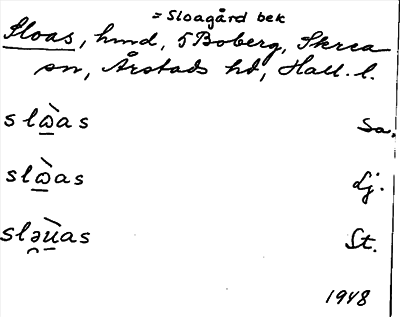 = Sloagård bek
Sloas, hmd, 5 Boberg, Skrea
sn, Årstads hd, Hall. l.
slɷ̀as Sa.
slɷ̀as Lj.
sləu̇̀as St.
1948